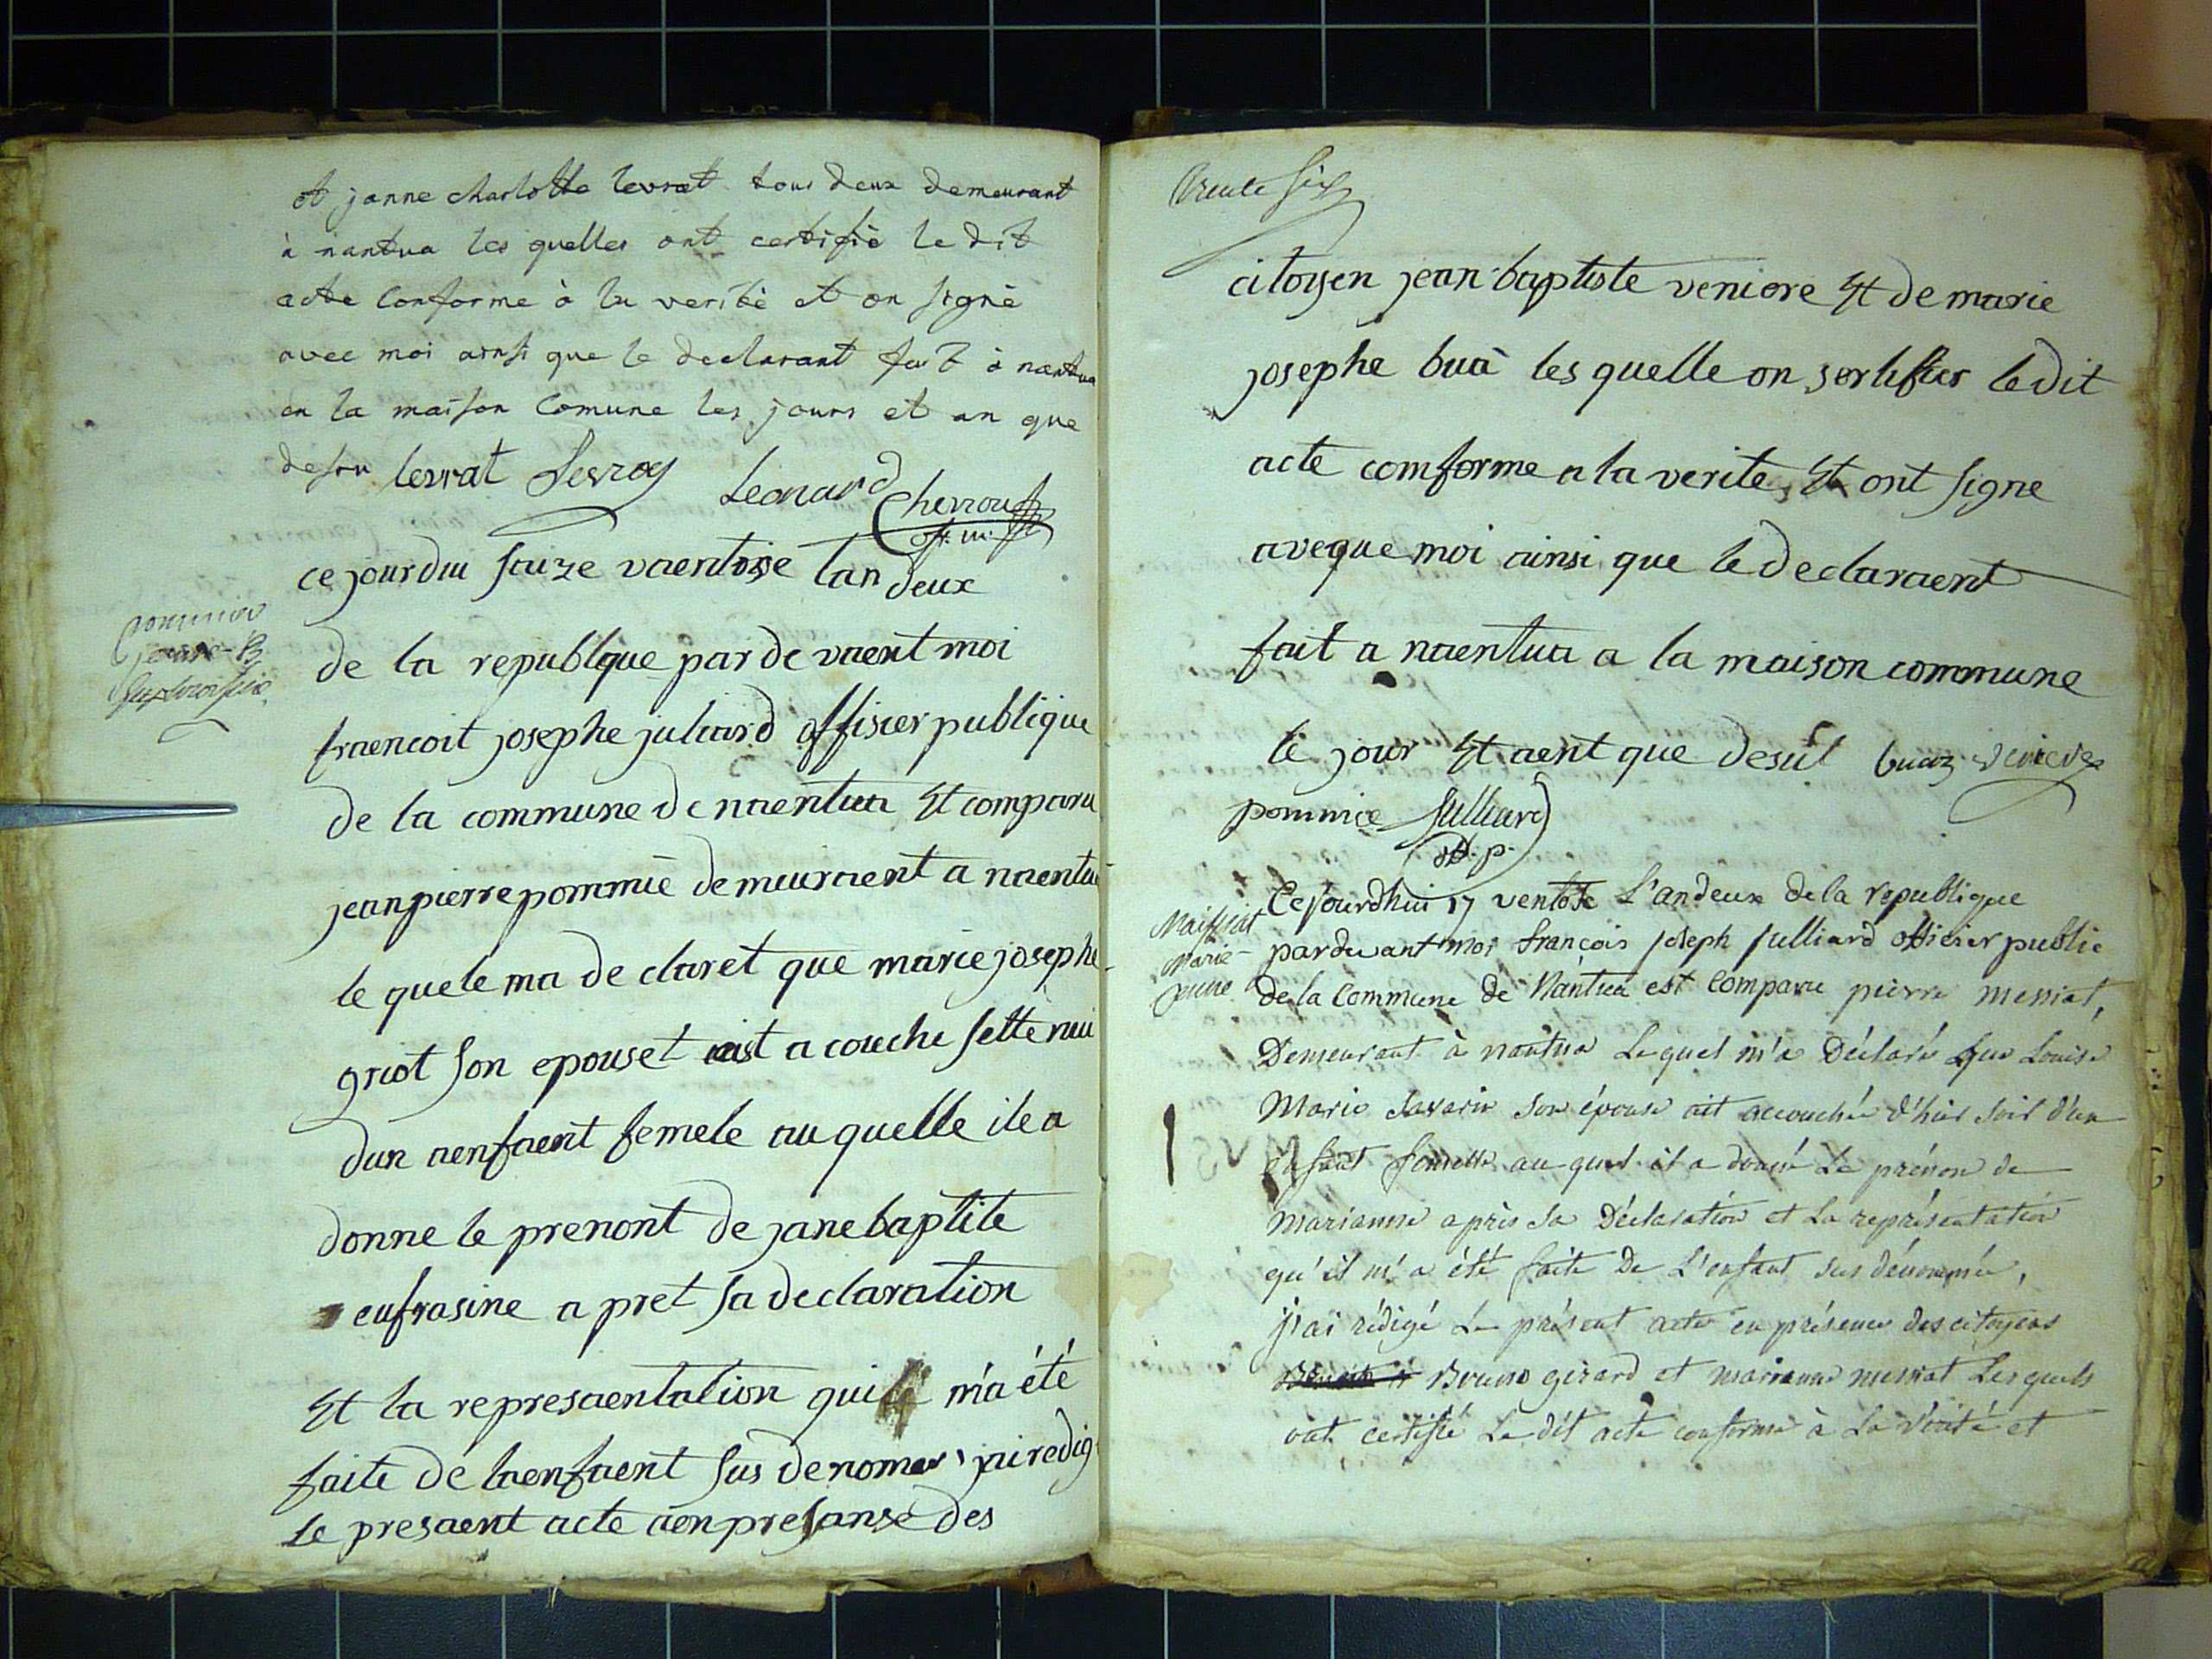 et janne charlotte levrat tous deux demeurant
à nantua les quelles ont certifié le dit
acte conforme à la verité et on signé
avec moi ainsi que le declarant fait à nantua
en la maison comune les jours et an que
desu levrat Levroy Leonard Cherrou
off. m.
ce jourdui saize vaentose lan deux
pommier
jeanne-B.
de la republque par de vaent moi
fraencoit josephe juliard offisier publique
de la commune de naentua Et comparu
jean pierre pommie demeuraent a naentua
le quele ma de claret que marie josephe
griot son epouset aist a couche sette nui
dun aenfaent femele au quelle ile a
donne le prenont de jane baptite
eufrasine a pret sa declaration
Et la represaentation quil m'a été
faite de laenfaent sus denomer jai redig
le presaent acte aen presanse des
trente six
citoyen jean baptiste veniere Et de marie
josephe buà les quelle on sertifier ledit
acte comforme a la verite Et ont signe
aveque moi ainsi que le declaraent
fait a naentua a la maison commune
le jour Et aent que desut buaz veniere
pommie Julliard
off. p.
Cejourdhui 17 ventose L'an deux de la republique
Maissiat
marie
pardevant moi françois joseph Julliard officier public
de la Commune de Nantua est comparu pierre messiat,
Demeurant à nantua Lequel m'a Déclaré que Louise
Marie savarin son épouse ait accouchée d'hier soir d'un
enfant femelle au quel il a donné le prénom de
marianne après sa Déclaration et la représentation
qu'il m'a été faite De L'enfant sus dénommée,
j'ai rédigé Le présent acte en présence des citoyens
Bruno girard et marianne messiat Lesquels
ont certifié Le dit acte conforme à La vérité et